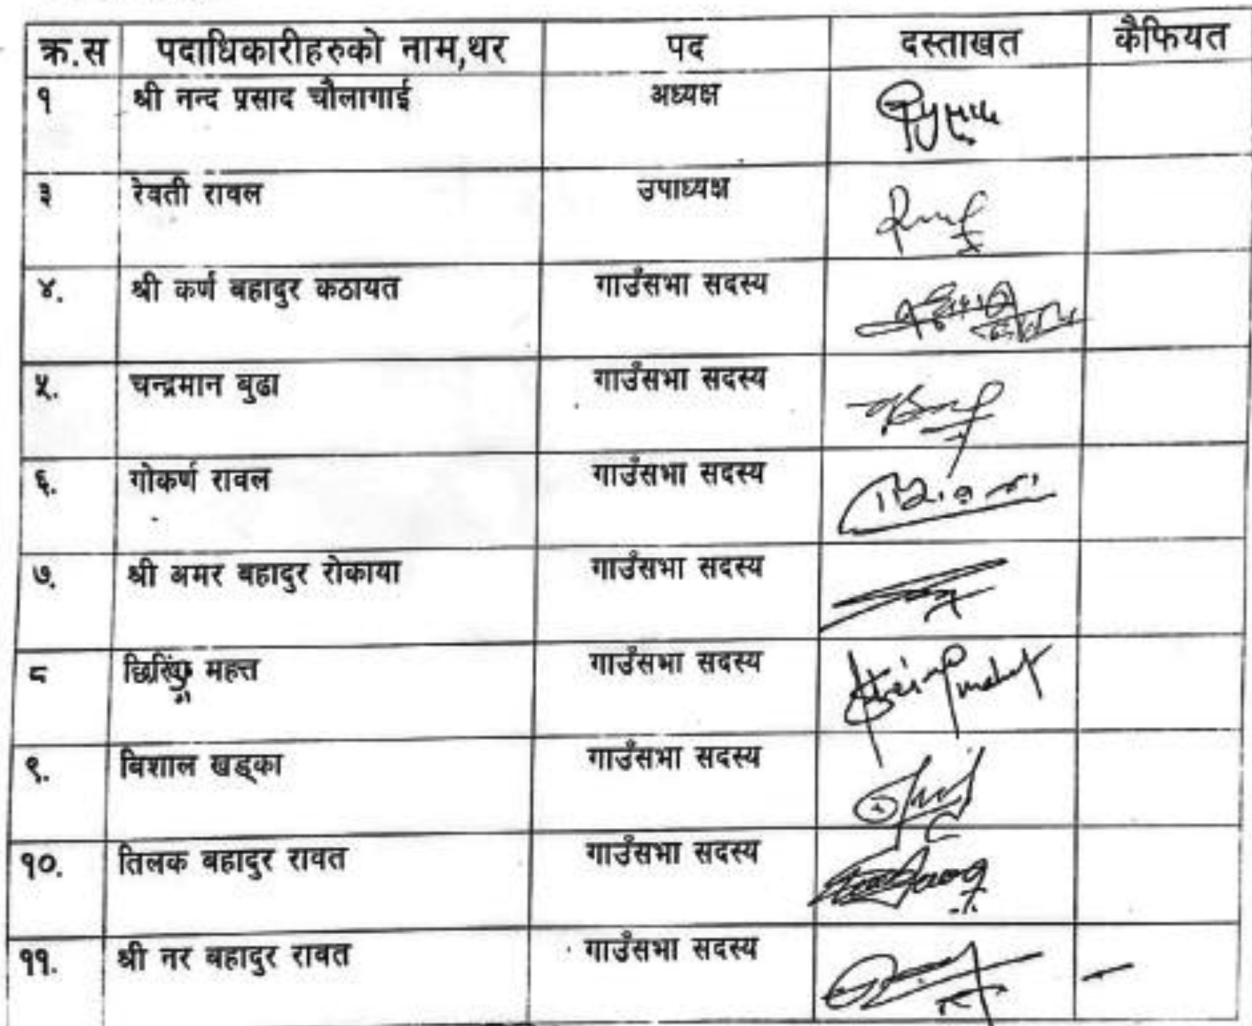 क्र.स पदाधिकारीहरुको नाम,थर पद दस्ताखत कैफियत
१ श्री नन्द प्रसाद चौलागाई अध्यक्ष
३ रेवती रावल उपाध्यक्ष
४. श्री कर्ण बहादुर कठायत गाउँसभा सदस्य
५. चन्द्रमान बुढा गाउँसभा सदस्य
६. गोकर्ण रावल गाउँसभा सदस्य
७. श्री अमर बहादुर रोकाया गाउँसभा सदस्य
८ महत्त गाउँसभा सदस्य
९. बिशाल खड्का गाउँसभा सदस्य
१०. तिलक बहादुर रावत गाउँसभा सदस्य
११. श्री नर बहादुर रावत गाउँसभा सदस्य